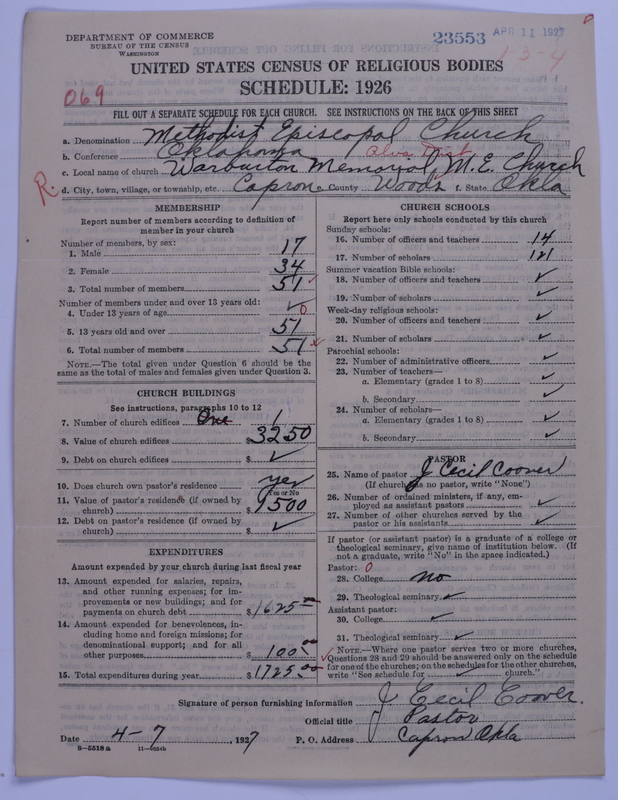 DEPARTMENT OF COMMERCE
BUREAU OF THE CENSUS
WASHINGTON
23553
APR 11 1927
1-3-4
UNITED STATES CENSUS OF RELIGIOUS BODIES
SCHEDULE: 1926
069
FILL OUT A SEPARATE SCHEDULE FOR EACH CHURCH. SEE INSTRUCTIONS ON THE BACK OF THIS SHEET
a. Denomination Methodist Episcopal Church
b. Conference Oklahoma Alva Dist
c. Local name of church Warburton Memorial M. E. Church
R. d. City, town, village, or township, etc. Capron e. County Woods f. State Okla
MEMBERSHIP
Report number of members according to definition of
member in your church
Number of members, by sex:
1. Male 17
2. Female 34
3. Total number of members 51 ✓
Number of members under and over 13 years old:
4. Under 13 years of age ✓ 0
5. 13 years old and over 51
6. Total number of members 51
NOTE.—The total given under Question 6 should be the
same as the total of males and females given under Question 3.
CHURCH BUILDINGS
See instructions, paragraphs 10 to 12
7. Number of church edifices One 1
8. Value of church edifices $ 3250
9. Debt on church edifices $ ✓
10. Does church own pastor's residence yes
Yes or No
11. Value of pastor's residence (if owned by
church) $ 1500
12. Debt on pastor's residence (if owned by
church) $ ✓
EXPENDITURES
Amount expended by your church during last fiscal year
13. Amount expended for salaries, repairs,
and other running expenses; for im-
provements or new buildings; and for
payments on church debt $ 1625.00
14. Amount expended for benevolences, in-
cluding home and foreign missions; for
denominational support; and for all
other purposes $ 100.00
15. Total expenditures during year $ 1725.00
CHURCH SCHOOLS
Report here only schools conducted by this church
Sunday schools:
16. Number of officers and teachers 14
17. Number of scholars 121
Summer vacation Bible schools:
18. Number of officers and teachers ✓
19. Number of scholars ✓
Week-day religious schools:
20. Number of officers and teachers ✓
21. Number of scholars ✓
Parochial schools:
22. Number of administrative officers ✓
23. Number of teachers—
a. Elementary (grades 1 to 8) ✓
b. Secondary ✓
24. Number of scholars—
a. Elementary (grades 1 to 8) ✓
b. Secondary ✓
PASTOR
25. Name of pastor J Cecil Coover
(If church has no pastor, write "None")
26. Number of ordained ministers, if any, em-
ployed as assistant pastors ✓
27. Number of other churches served by the
pastor or his assistants ✓
If pastor (or assistant pastor) is a graduate of a college or
theological seminary, give name of institution below. (If
not a graduate, write "No" in the space indicated.)
Pastor: 0
28. College no
29. Theological seminary ✓
Assistant pastor:
30. College ✓
31. Theological seminary ✓
NOTE.—Where one pastor serves two or more churches,
Questions 28 and 29 should be answered only on the schedule
for one of the churches; on the schedules for the other churches,
write "See schedule for ✓ church."
Signature of person furnishing information J Cecil Coover.
Official title Pastor
Date 4-7, 1927 P. O. Address Capron Okla
8-5518 a 11-6554b